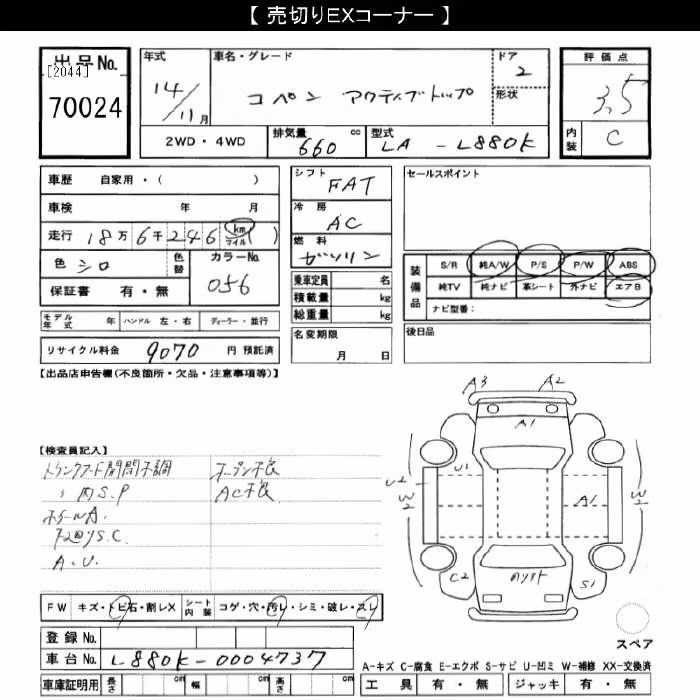 【 売切りEXコーナー 】
出品No.
[2044]
70024
年式
14/11月
車名・グレード
コペン アクティブトップ
ドア
2
形状
評価点
3.5
内装
C
2WD・4WD
排気量 660 cc
型式 LA - L880K
車歴 自家用・( )
車検 年 月
走行 18万6千246 km マイル ( )
色 シロ
色替
カラーNo. 056
保証書 有・無
モデル年式 年
ハンドル 左・右
ディーラー・並行
リサイクル料金 9070 円 預託済
シフト FAT
冷房 AC
燃料 ガソリン
乗車定員 名
積載量 kg
総重量 kg
名変期限
月 日
セールスポイント
装備品
S/R 純A/W P/S P/W ABS
純TV 純ナビ 革シート 外ナビ エアB
ナビ型番:
後日品
【出品店申告欄(不良箇所・欠品・注意事項等)】
【検査員記入】
トランクフード開閉不調
〃 内S.P
ホイールA.
下回りS.C.
A.U.
オープン不良
AC不良
A3
A2
A1
U1
U2
W2
A1
W2
C2
S1
FW キズ・トビ石・割レX
シート内装 コゲ・穴・汚レ・シミ・破レ・スレ
登録No.
車台No. L880K-0004737
車庫証明用 長さ cm 幅 cm 高さ cm
スペア
A-キズ C-腐食 E-エクボ S-サビ U-凹ミ W-補修 XX-交換済
工具 有・無 ジャッキ 有・無